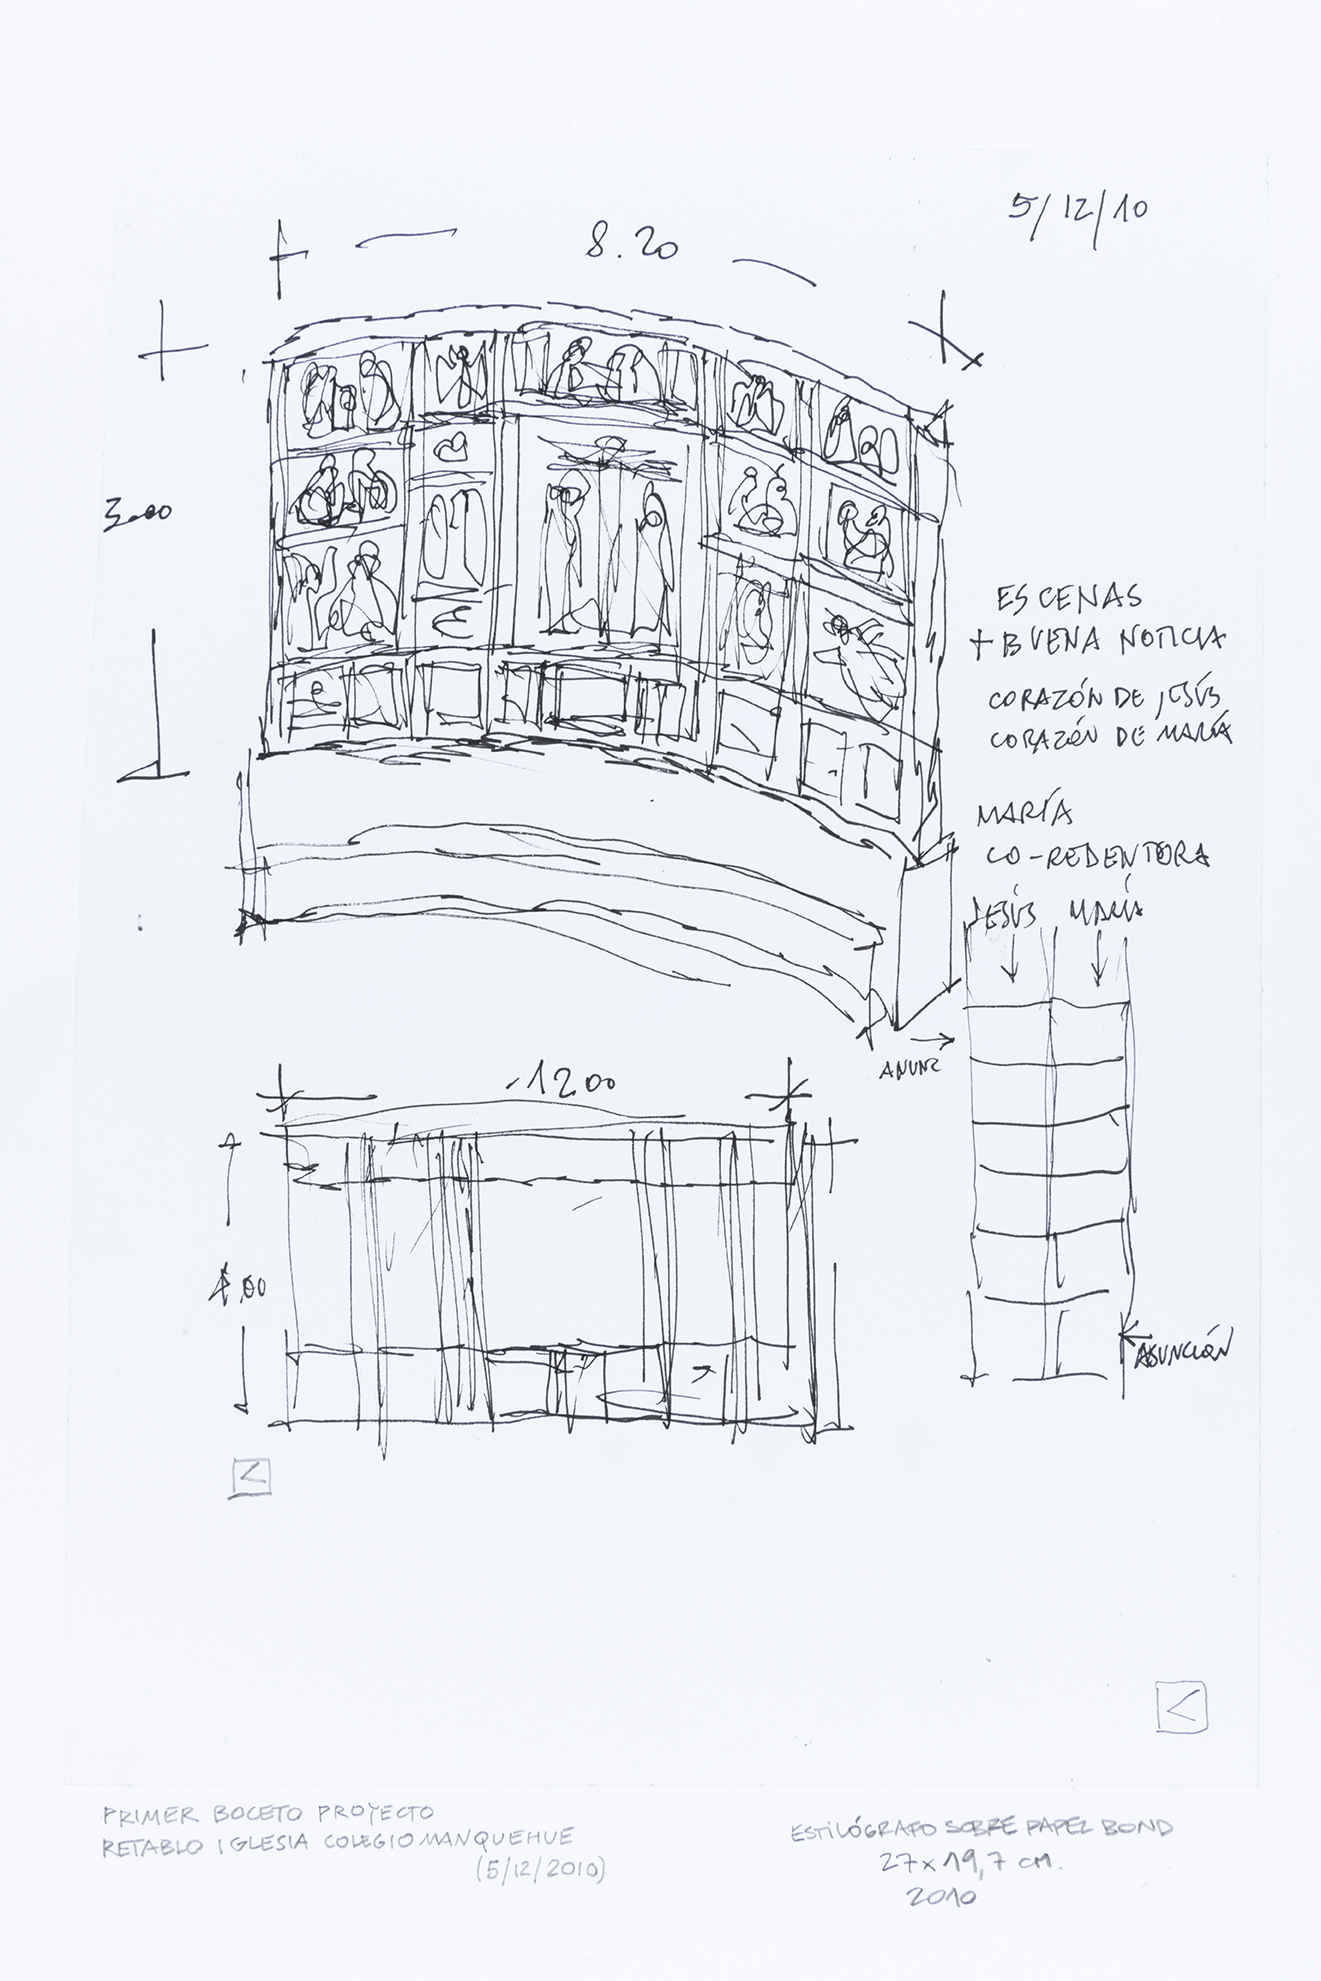 5/12/10
8.20
3.00
ESCENAS
+ BUENA NOTICIA
CORAZÓN DE JESÚS
CORAZÓN DE MARÍA
MARÍA
CO-REDENTORA
JESÚS MARÍA
ANUNC
12 00
4.00
ASUNCIÓN
PRIMER BOCETO PROYECTO
RETABLO IGLESIA COLEGIO MANQUEHUE
(5/12/2010)
ESTILÓGRAFO SOBRE PAPEL BOND
27 x 19,7 CM.
2010